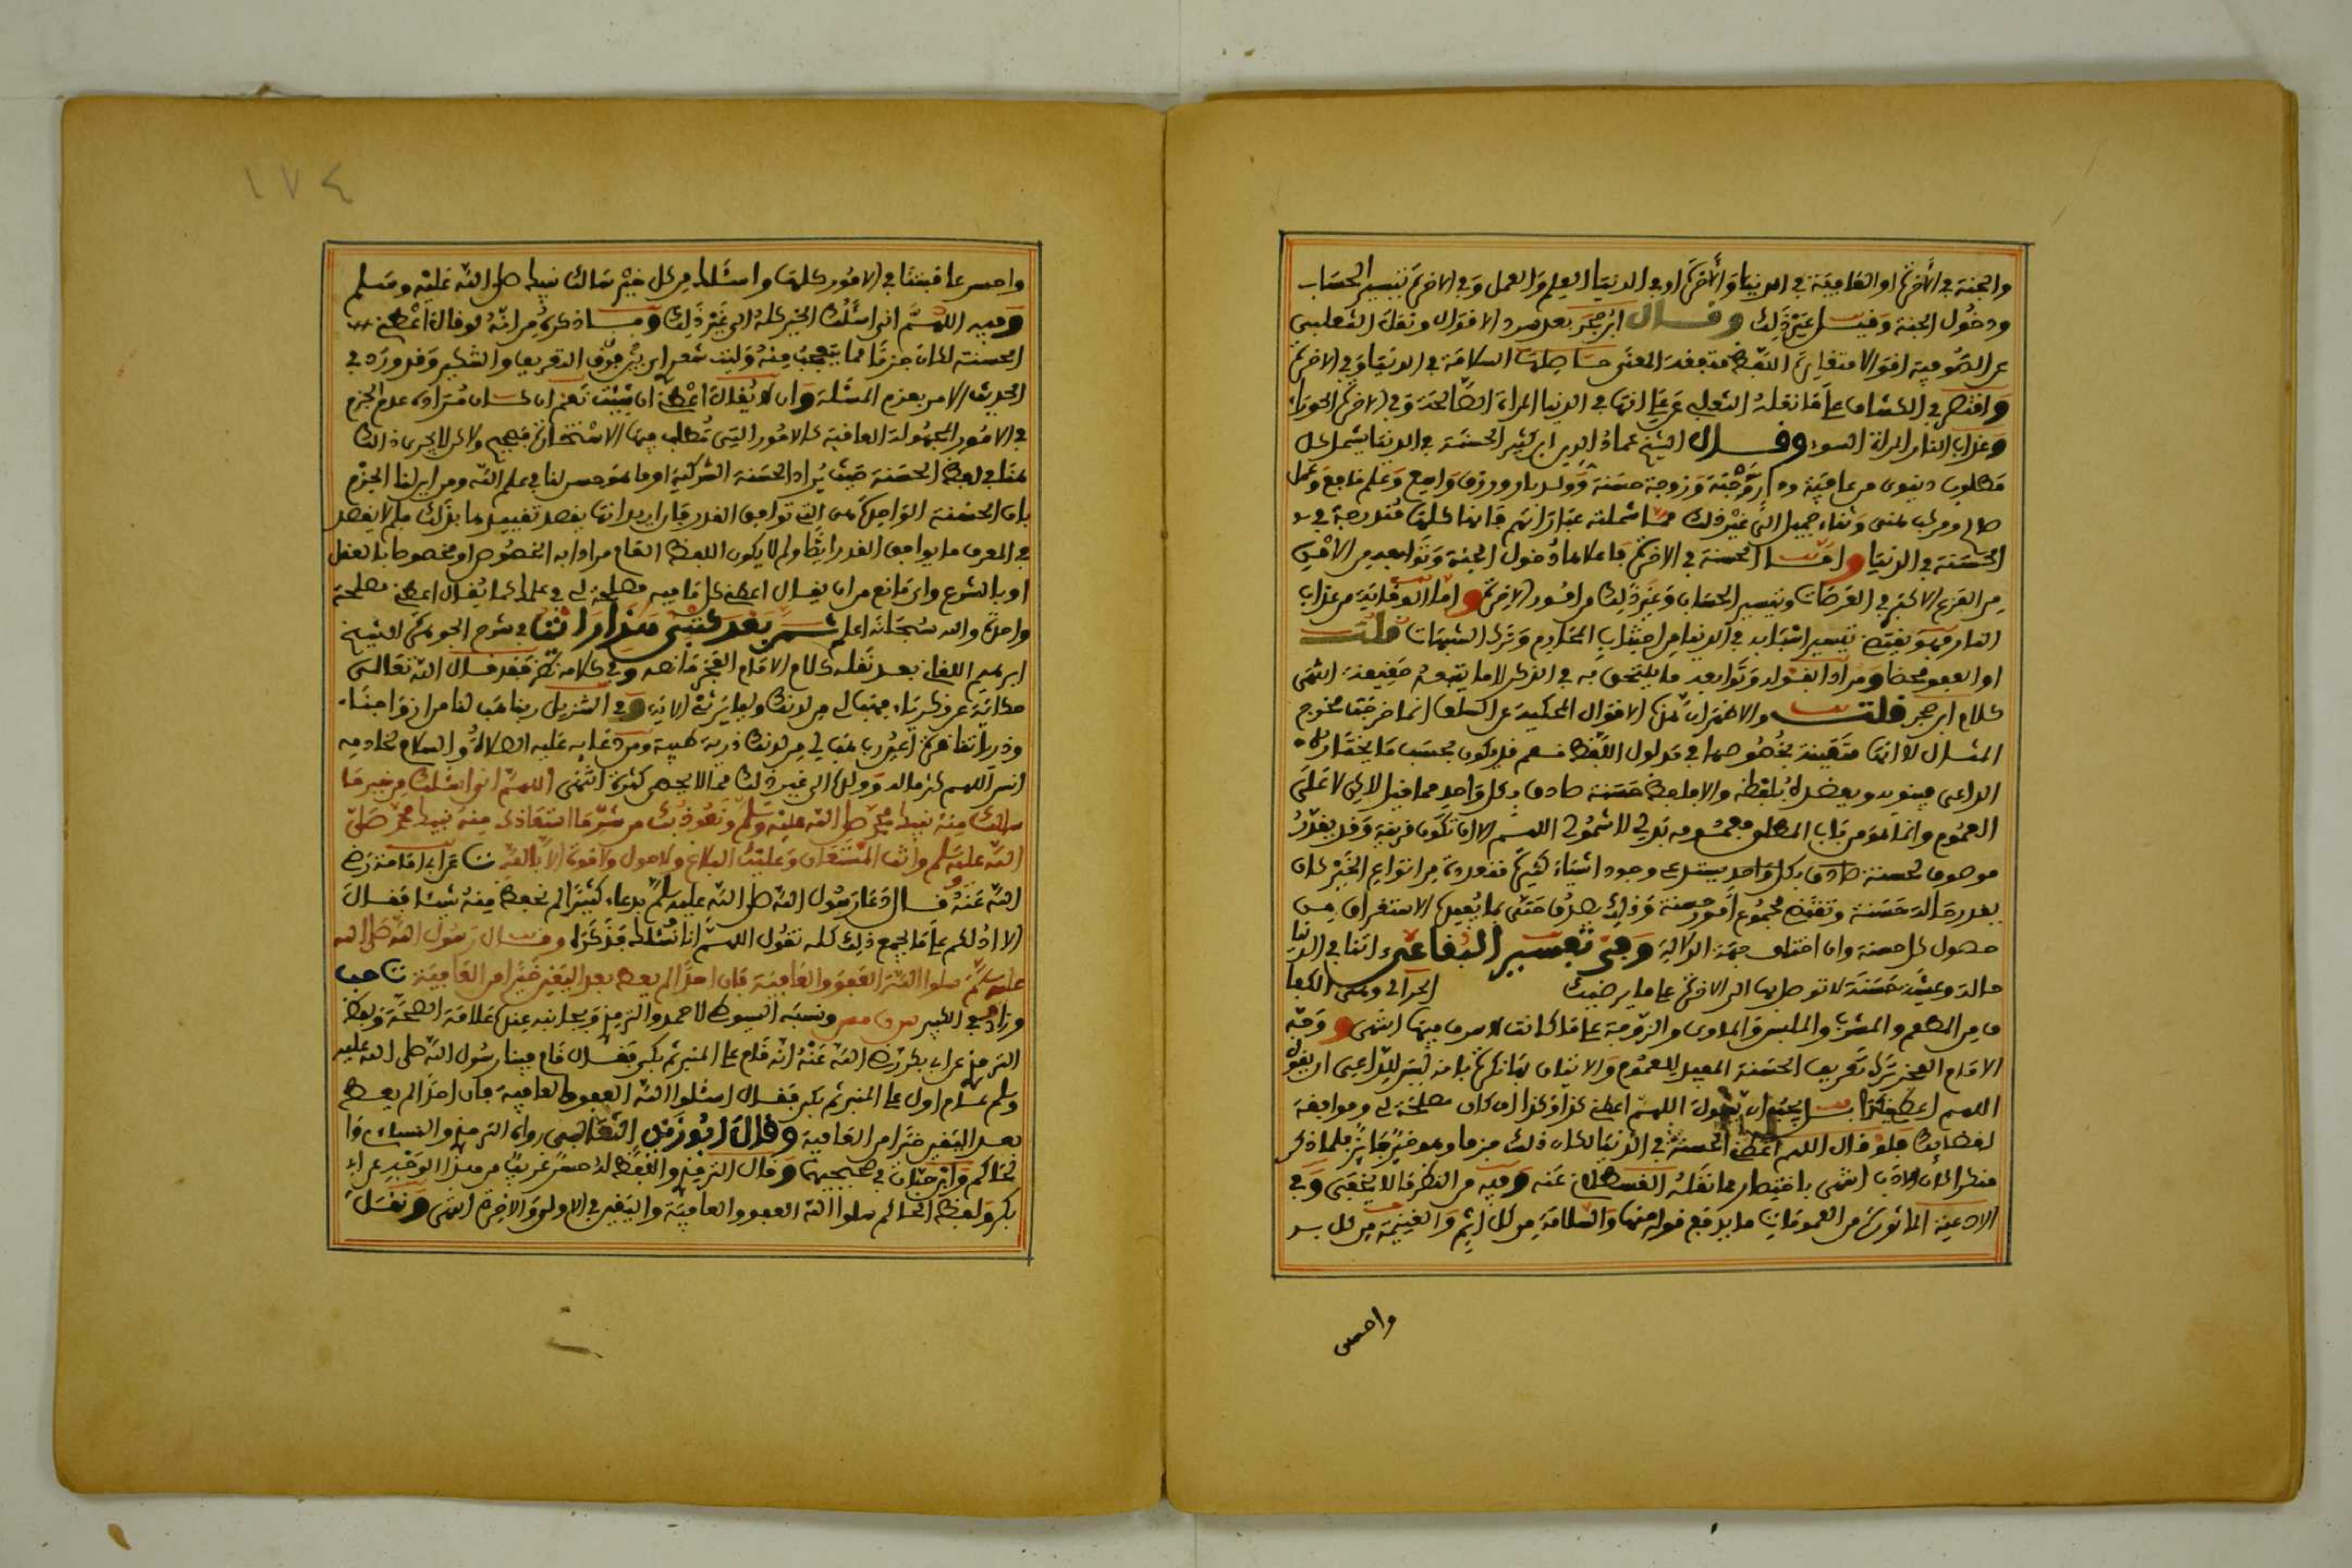 والجنة في الأخرة او العافية في الدنيا والأخرة او في الدنيا العلم والعمل وفي الاخرة تيسير الحساب
ودخول الجنة وقيل غير ذلك وقال ابن حجر بعد سرد الاقوال ونقل الثعلبي
عن الصوفية اقوالا متغايرة اللفظ متفقة المعنى حاصلها السلامة في الدنيا وفي الاخرة
واقتصر في الكشاف على ما نقله الثعلبي عن علي انها في الدنيا المراة الصالحة وفي الاخرة الحوراء
وعذاب النار المراة السوء وقال الشيخ عماد الدين ابن كثير الحسنة في الدنيا يشمل كل
مطلوب دنيوي من عافية ودار رحبة وزوجة حسنة وولد بار ورزق واسع وعلم نافع وعمل
صالح ومركب هني وثناء جميل الى غير ذلك مما شملته عباراتهم فانها كلها مندرجة في
الحسنة في الدنيا واما الحسنة في الاخرة فاعلاها دخول الجنة وتوابعه من الامن
من الفزع الاكبر في العرصات وتيسير الحساب وغير ذلك من امور الاخرة واما الوقاية من عذاب
النار فهو يقتضي تيسير اسبابه في الدنيا من اجتناب المحارم وترك الشبهات قلت
او العفو محضا ومراده بقوله وتوابعه ما يلتحق به في الذكر لا ما يتبعه حقيقة انتهى
كلام ابن حجر قلت والاظهر ان هذه الاقوال المحكية عن السلف انما خرجت مخرج
المثال لا انها متعينة بخصوصها في مدلول اللفظ نعم قد يكون بحسب ما يختاره
الداعي فينويه ويقصده بلفظه والا فلفظ حسنة صادق بكل واحد مما قيل لاكن لا على
العموم وانما هو من باب المطلق فعمومه بدلي لا شمولي اللهم الا ان تكون قرينة وقد يقدر
موصوف لحسنة صادق بكل واحد يستدعي وجود اشياء كثيرة متعددة من انواع الخير كان
يقدر حالة حسنة وتقتضي مجموع امور حسنة وذلك يصدق حتى بما يفيده الاستغراق من
حصول كل حسنة وان اختلف جهة الدلالة وفي تفسير البقاعي اتنا في الدنيا
حالة وعيشة حسنة لا توصل بها الى الاخرة على ما يرضيك الحرالي وهي الكفا
ف من المطعم والمشرب والملبس والماوى والزوجة على ما كانت لا سرف فيها انتهى ووجه
الامام الفخر ترك تعريف الحسنة المفيد للعموم والاتيان بها نكرة بانه ليس للداعي ان يقول
اللهم اعطني كذا بل يجب ان يقول اللهم اعطني كذا وكذا ان كان مصلحة لي وموافقة
لقضايك فلو قال اللهم اعطني الحسنة في الدنيا لكان ذلك جزما وهو غير جايز فلما ذكر
منكرا كان الادب انتهى باختصار هكذا نقله القسطلاني عنه وفيه من النظر ما لا يخفى وفي
الادعية الماثورة من العمومات ما يدفع قوله منها والسلامة من كل اثم والغنيمة من كل بر
واحسن
١٧٤
واحسن عاقبتنا في الامور كلها واسئلك من كل خير سالك نبيك صلى الله عليه وسلم
وفيه اللهم اني اسئلك الخير كله الى غير ذلك وما ذكره من انه لو قال اعطني
الحسنة لكان جزما مما يتعجب منه وليت شعري اي فرق التعريف والتنكير وقد ورد في
الحديث الامر بعزم المسئلة وان لا يقال اعطني ان شئت نعم ان كان مراده عدم الجزم
في الامور المجهولة العافية كالامور التي تطلب فيها الاستخارة فصحيح ولاكن لا يجري ذالك
هنا في لفظ الحسنة حيث يراد الحسنة الشرعية او ما هو حسن لنا في علم الله ومن اين لنا الجزم
بان الحسنة الواحدة هي التي توافق القدر فان اريد انها بقصد تقييدها بذلك فلم لا يقصد
في المعرف ما يوافق القدر ايضا ولم لا يكون اللفظ العام مرادا به الخصوص او مخصوصا بالعقل
او بالشرع واي مانع من ان يقال اعطني كل ما فيه مصلحة لي في علمك كما يقال اعطني مصلحة
واحدة والله سبحانه اعلم ثم بعد كتبي هذا رايتنا في شرح الجوهرة للشيخ
ابرهيم اللقاني بعد نقله كلام الامام الفخر ما نصه وفي كلامه نظر فقد قال الله تعالى
حكاية عن زكرياء فهب لي من لدنك وليا يرثني الاية وفي التنزيل ربنا هب لنا من ازواجنا
وذرياتنا قرة اعين رب هب لي من لدنك ذرية طيبة ومن دعايه عليه الصلاة والسلام لخادمه
انس اللهم كثر ماله وولده الى غير ذلك مما لا يحصى كثرة انتهى اللهم انا نسئلك من خير ما
سالك منه نبيك محمد صلى الله عليه وسلم ونعوذ بك من شر ما استعاذك منه نبيك محمد صلى
الله عليه وسلم وانت المستعان وعليك البلاغ ولا حول ولا قوة الا بالله ت عن ابي امامة رضي
الله عنه قال دعا رسول الله صلى الله عليه وسلم بدعاء كثير لم نحفظ منه شيئا فقال
الا ادلكم على ما يجمع ذلك كله تقول اللهم انا نسئلك فذكره وقال رسول الله صلى الله
عليه وسلم سلوا الله العفو والعافية فان احدا لم يعط بعد اليقين خيرا من العافية ت حب
وزاد في الكبير س ق مص ونسبه السيوطي لاحمد والترمذي وبجانبه عندي علامة الصحة ولفظ
الترمذي عن ابي بكر رضي الله عنه انه قام على المنبر ثم بكى فقال قام فينا رسول الله صلى الله عليه
وسلم عام اول على المنبر ثم بكى فقال اسئلوا الله العفو والعافية فان احدا لم يعط
بعد اليقين خيرا من العافية وقال ابو زيد الثعالبي رواه الترمذي والنساءي وا
لحاكم وابن حبان في صحيحيهما وقال الترمذي واللفظ له حسن غريب من هذا الوجه عن ابي
بكر ولفظ الحاكم سلوا الله العفو والعافية واليقين في الاولى والاخرة انتهى ونقل